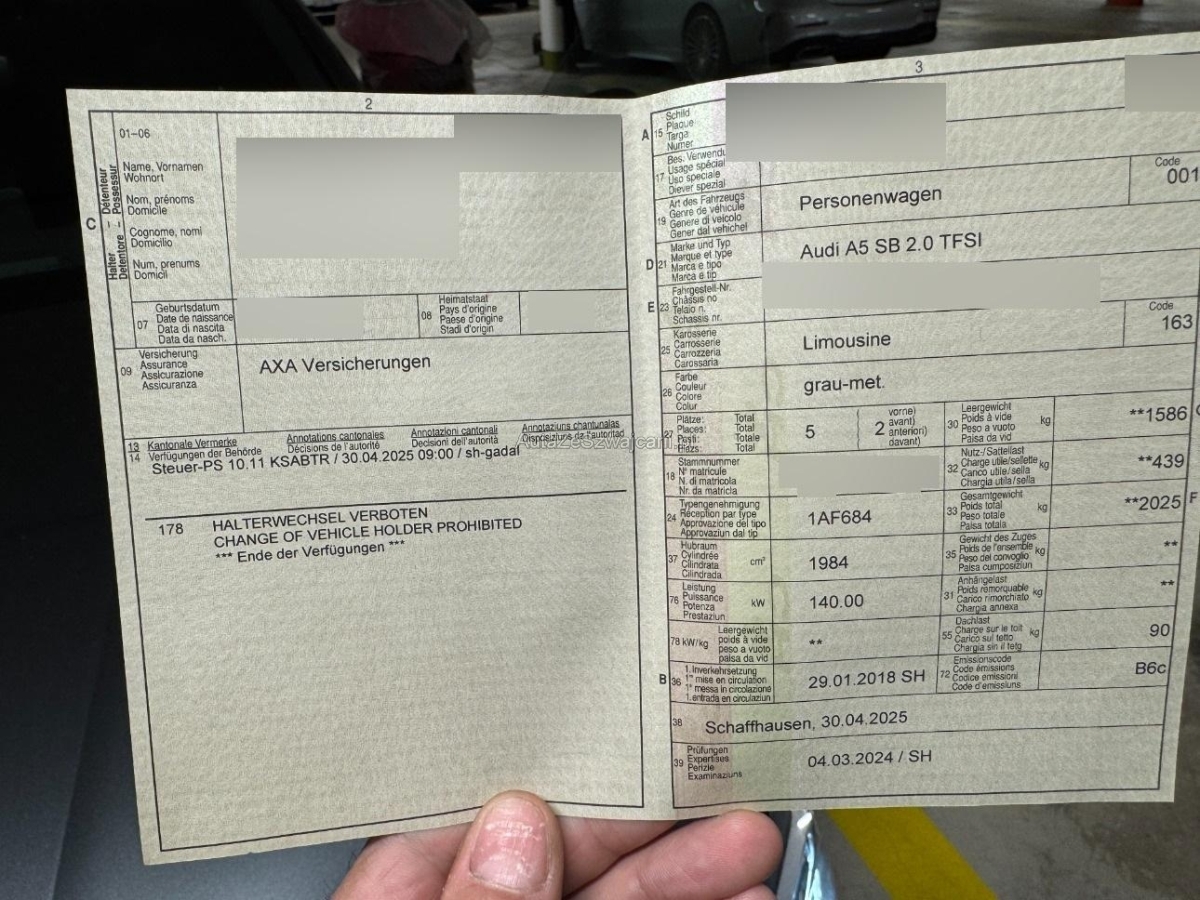 2
01-06
C
Halter – Détenteur
Detentore – Possessur
Name, Vornamen
Wohnort
Nom, prénoms
Domicile
Cognome, nomi
Domicilio
Num, prenums
Domicil
07
Geburtsdatum
Date de naissance
Data di nascita
Data da nasch.
08
Heimatstaat
Pays d'origine
Paese d'origine
Stadi d'origin
09
Versicherung
Assurance
Assicurazione
Assicuranza
AXA Versicherungen
13 Kantonale Vermerke Annotations cantonales Annotazioni cantonali Annotaziuns chantunalas
14 Verfügungen der Behörde Décisions de l'autorité Decisioni dell'autorità Disposiziuns da l'autoritad
Steuer-PS 10.11 KSABTR / 30.04.2025 09:00 / sh-gadal
178 HALTERWECHSEL VERBOTEN
CHANGE OF VEHICLE HOLDER PROHIBITED
*** Ende der Verfügungen ***
3
A 15
Schild
Plaque
Targa
Numer
17
Bes. Verwendu
Usage spécial
Uso speciale
Diever spezial
19
Art des Fahrzeugs
Genre de véhicule
Genere di veicolo
Gener dal vehichel
Personenwagen
Code
001
D 21
Marke und Typ
Marque et type
Marca e tipo
Marca e tip
Audi A5 SB 2.0 TFSI
E 23
Fahrgestell-Nr.
Châssis no
Telaio n.
Schassis nr.
25
Karosserie
Carrosserie
Carrozzeria
Carossaria
Limousine
Code
163
26
Farbe
Couleur
Colore
Colur
grau-met.
27
Plätze: Total
Places: Total
Posti: Totale
Plazs: Total
5
2
vorne)
avant)
anteriori)
davant)
30
Leergewicht
Poids à vide
Peso a vuoto
Paisa da vid
kg
**1586
18
Stammnummer
N° matricule
N. di matricola
Nr. da matricla
32
Nutz-/Sattellast
Charge utile/sellette
Carico utile/sella
Chargia utila/sella
kg
**439
24
Typengenehmigung
Réception par type
Approvazione del tipo
Approvaziun dal tip
1AF684
33
Gesamtgewicht
Poids total
Peso totale
Paisa totala
kg
**2025
F
37
Hubraum
Cylindrée
Cilindrata
Cilindrada
cm³
1984
35
Gewicht des Zuges
Poids de l'ensemble
Peso del convoglio
Paisa cumposiziun
kg
**
76
Leistung
Puissance
Potenza
Prestaziun
kW
140.00
31
Anhängelast
Poids remorquable
Carico rimorchiato
Chargia annexa
kg
**
78 kW/kg
Leergewicht
poids à vide
peso a vuoto
paisa da vid
**
55
Dachlast
Charge sur le toit
Carico sul tetto
Chargia sin il tetg
kg
90
B 36
1. Inverkehrsetzung
1re mise en circulation
1a messa in circolazione
1. entrada en circulaziun
29.01.2018 SH
72
Emissionscode
Code émissions
Codice emissioni
Code d'emissiuns
B6c
38
Schaffhausen, 30.04.2025
39
Prüfungen
Expertises
Perizie
Examinaziuns
04.03.2024 / SH